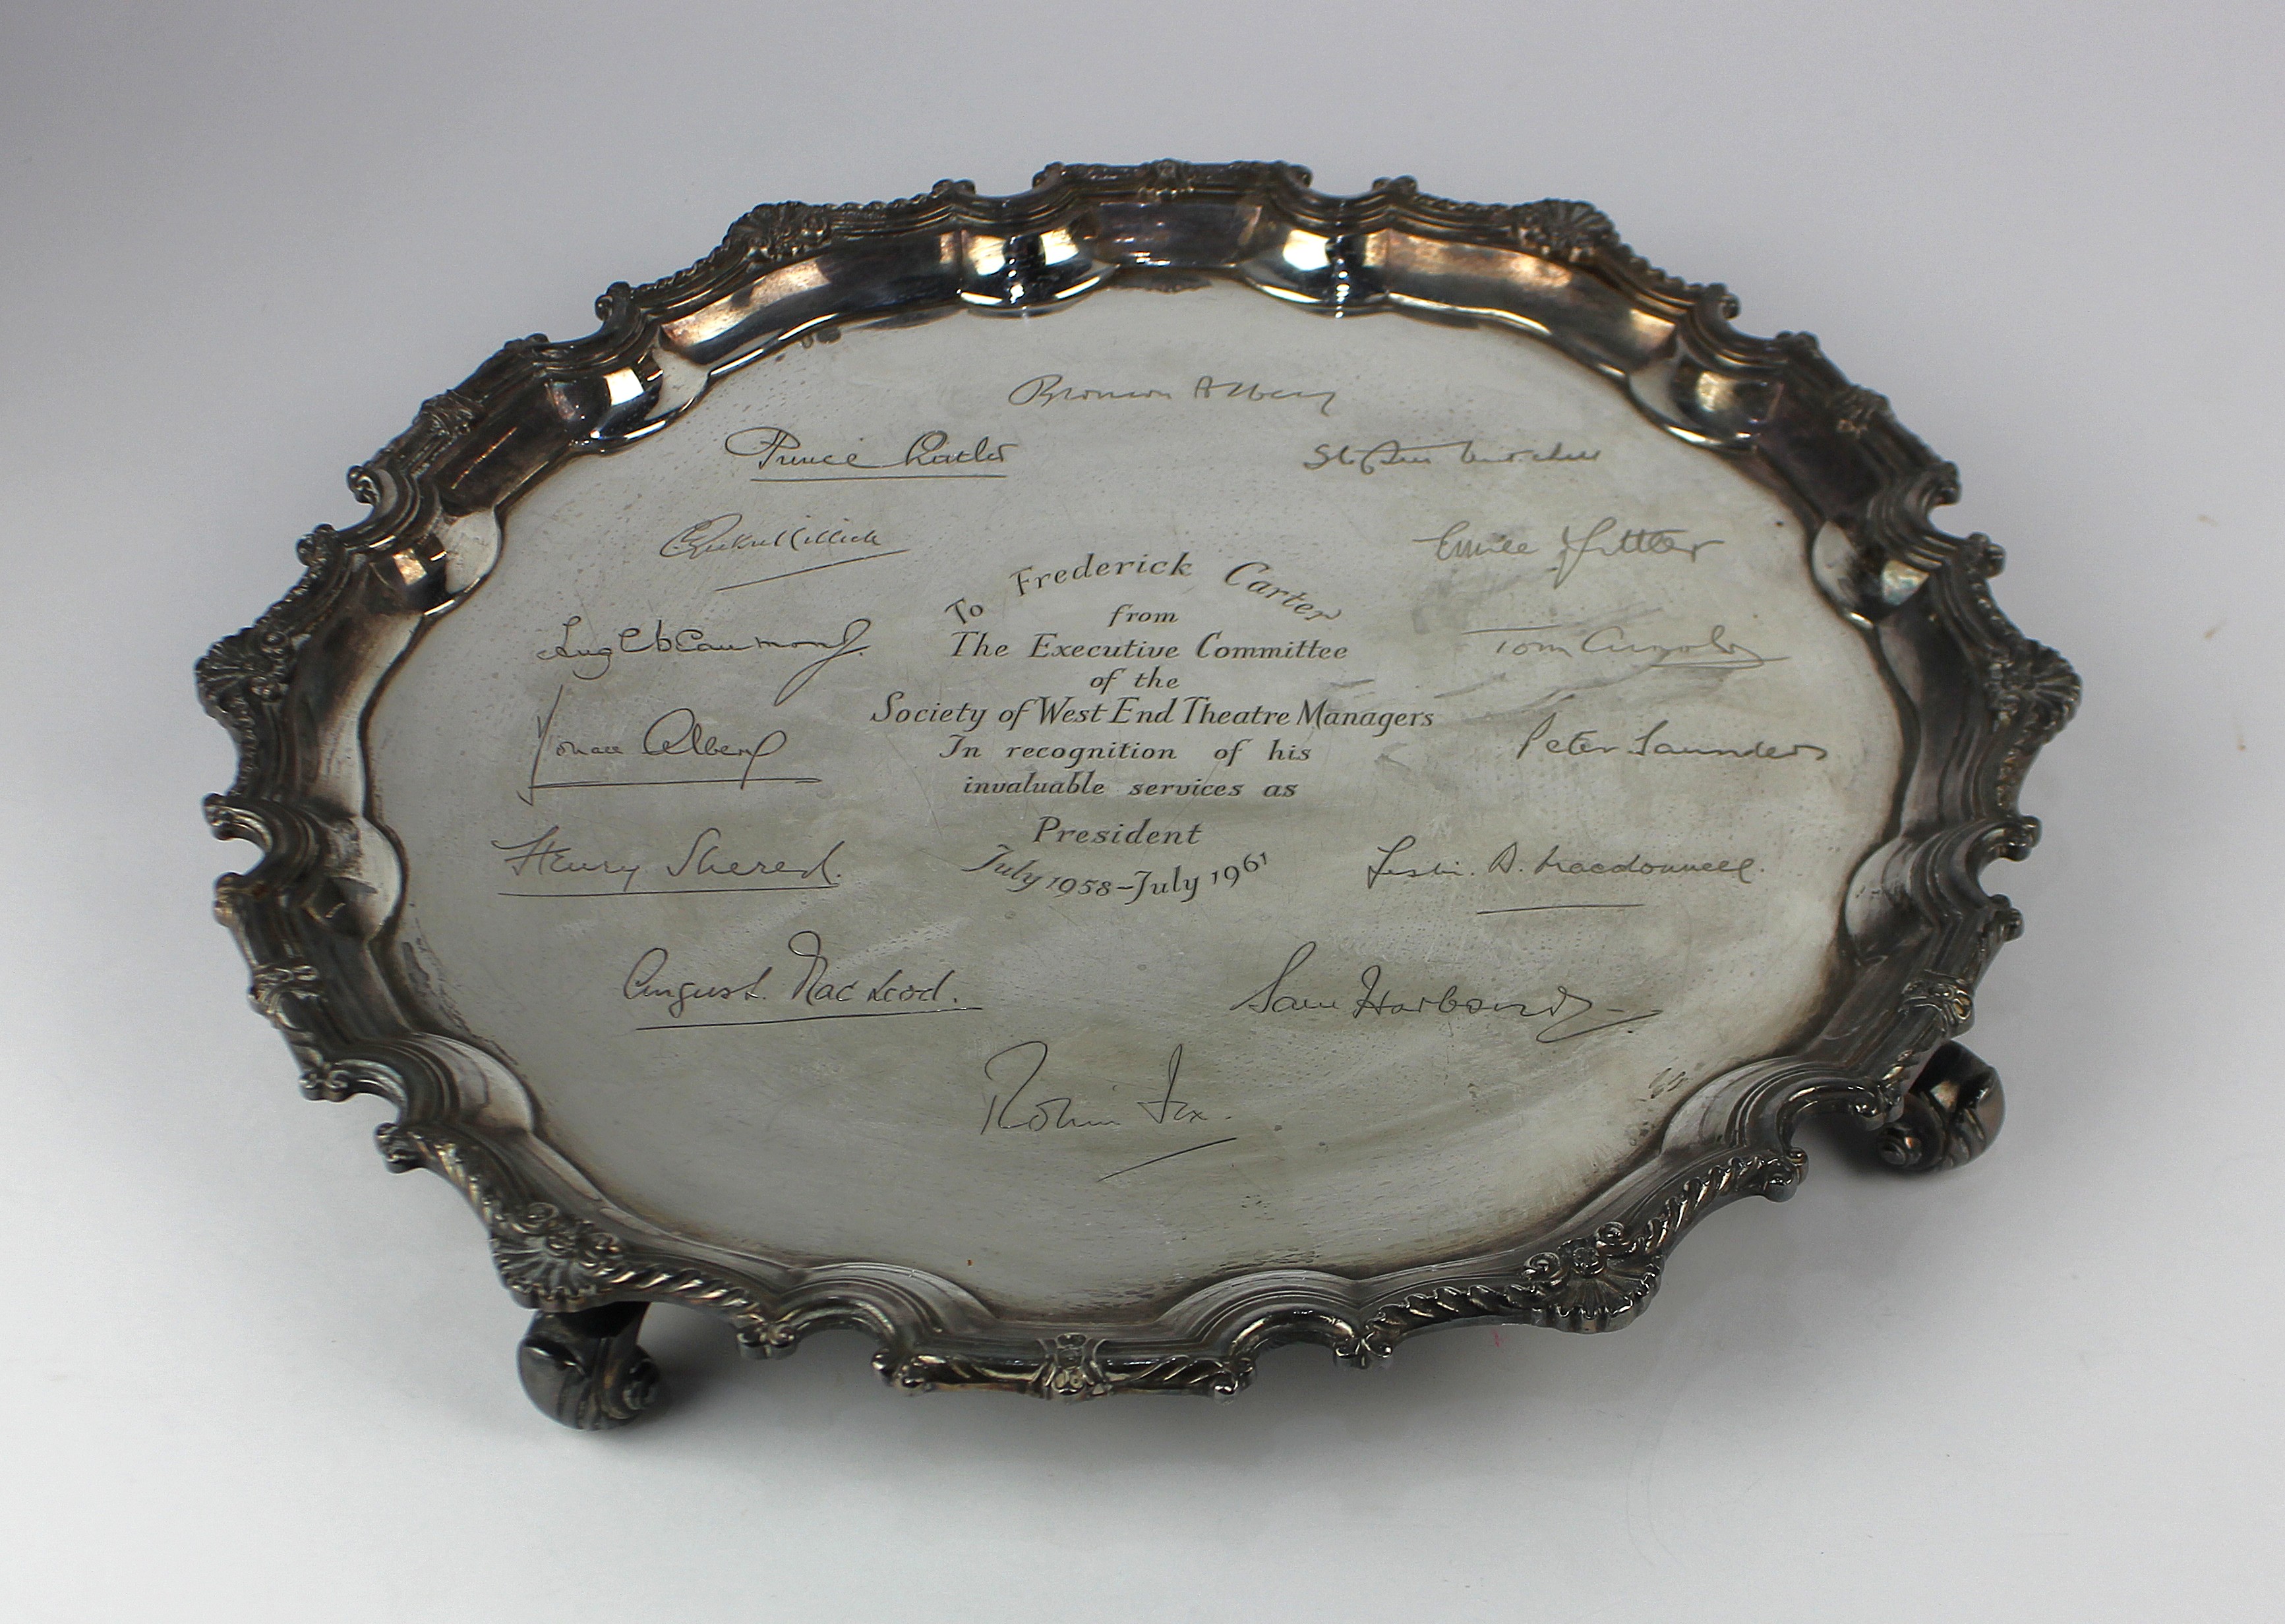 Bronson Albery
Prince Littler
Stephen Mitchell
Emile Littler
To Frederick Carter
from
The Executive Committee
of the
Society of West End Theatre Managers
In recognition of his
invaluable services as
President
July 1958-July 1961
Hugh Beaumont.
Tom Arnold
Albery
Peter Saunders
Henry Sherek.
Leslie. A. Macdonnell.
August. MacLeod.
Sam Harbour
Robin Fox.